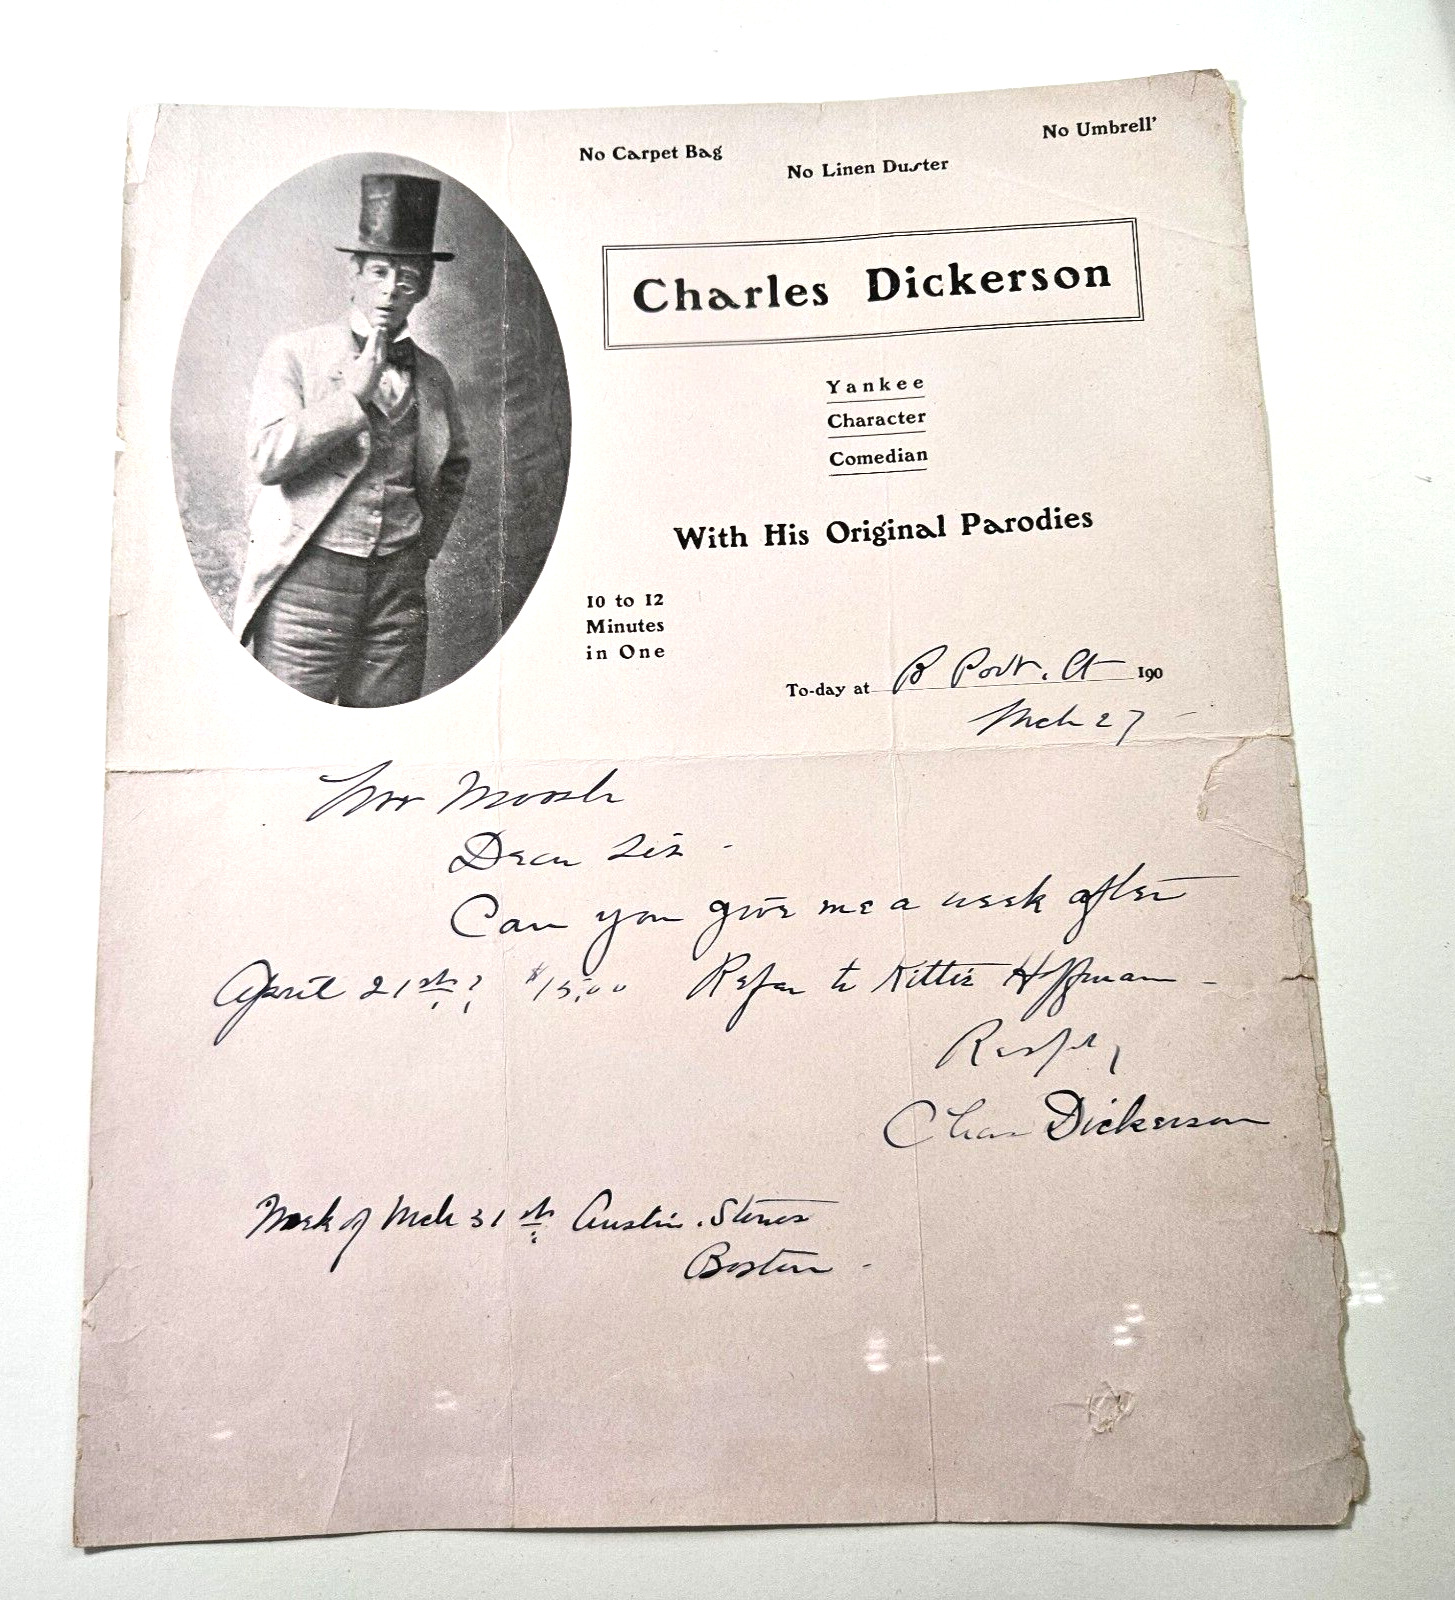 No Carpet Bag
No Linen Duster
No Umbrell'
Charles Dickerson
Yankee
Character
Comedian
With His Original Parodies
10 to 12
Minutes
in One
To-day at B Port. Ct 190
Mch 27
Dear Sir -
Can you give me a week after
April 21st? $15,00 Refer to Kittie Hoffman -
Respty
Chas Dickerson
Week of Mch 31st Austin. Stones
Boston -